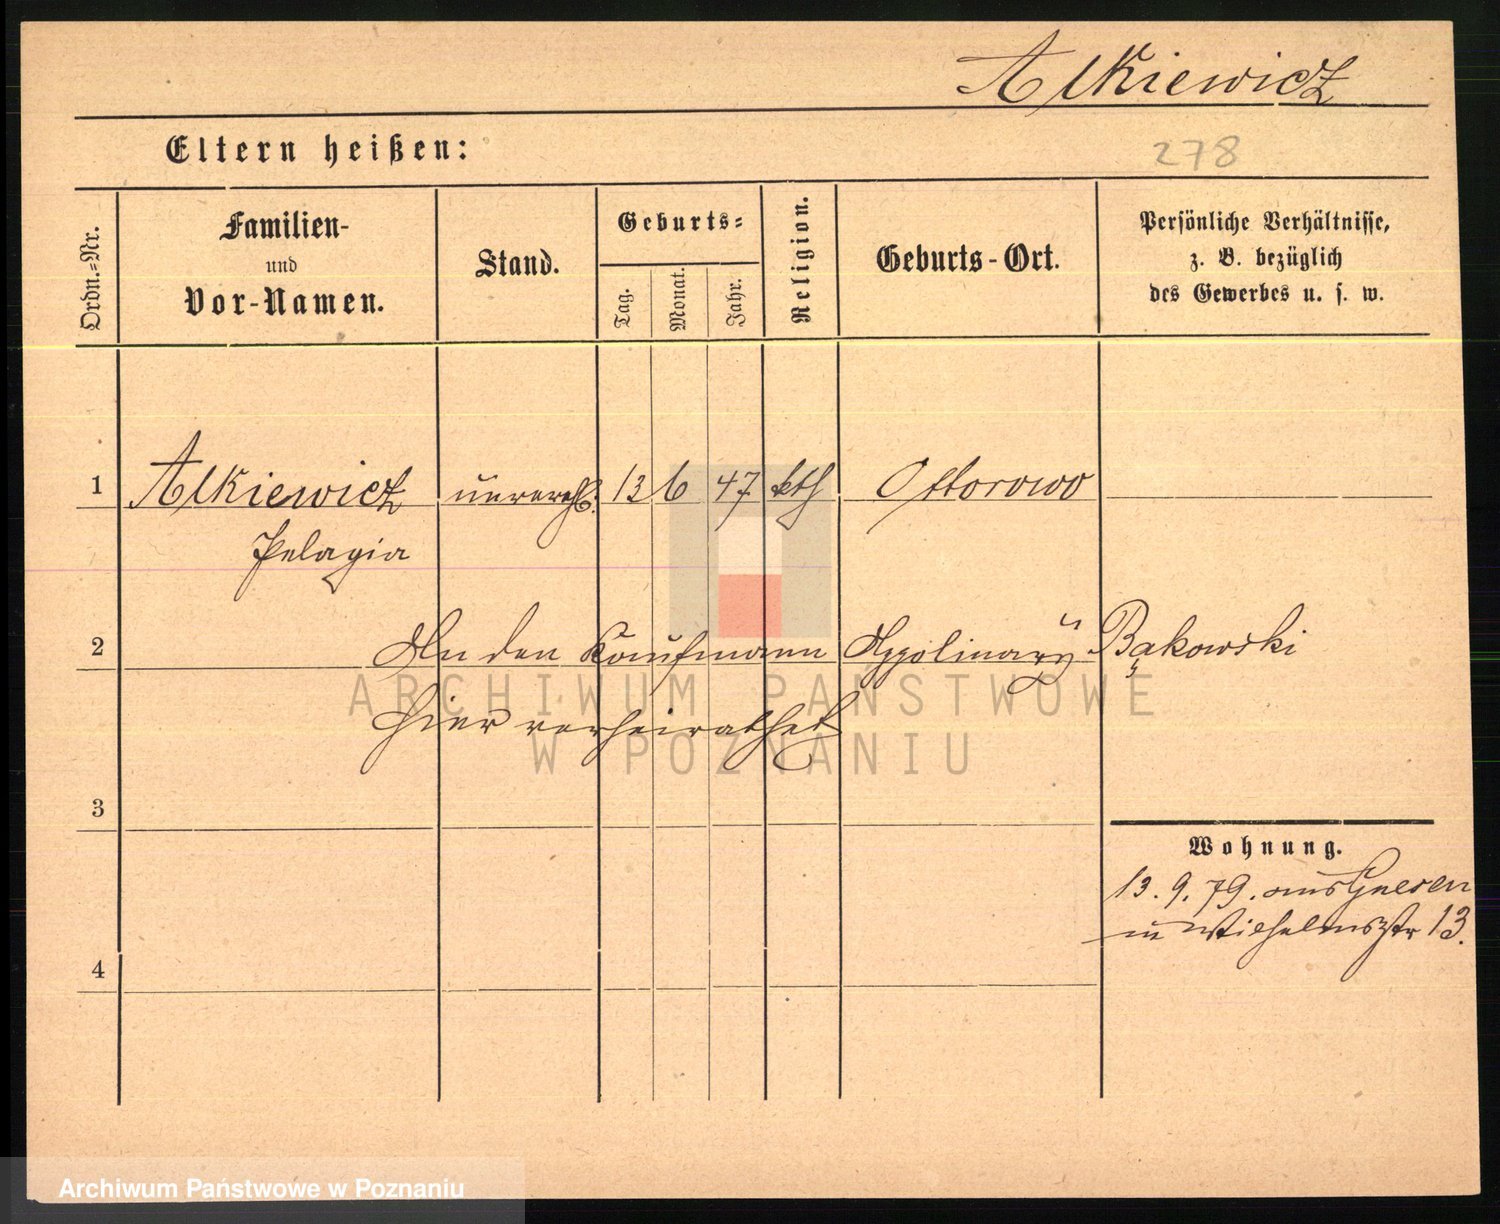 Alkiewicz
Eltern heißen:
278
Ordn.=Nr.
Familien-
und
Vor-Namen.
Stand.
Geburts=
Tag.
Monat.
Jahr.
Religion.
Geburts-Ort.
Persönliche Verhältnisse,
z. B. bezüglich
des Gewerbes u. s. w.
1 Alkiewicz unvereh. 13 6 47 kth Ottorowo
Pelagia
2 An den Kaufmann Appolinary Bąkowski
hier verheirathet
ARCHIWUM PAŃSTWOWE
W POZNANIU
3
Wohnung.
13. 9. 79. aus Gnesen
n Wilhelmsstr 13.
4
Archiwum Państwowe w Poznaniu